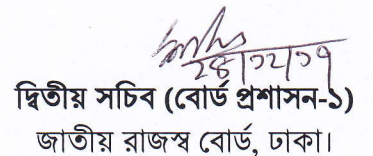 ২৪/১২/১৭
দ্বিতীয় সচিব (বোর্ড প্রশাসন-১)
জাতীয় রাজস্ব বোর্ড, ঢাকা।